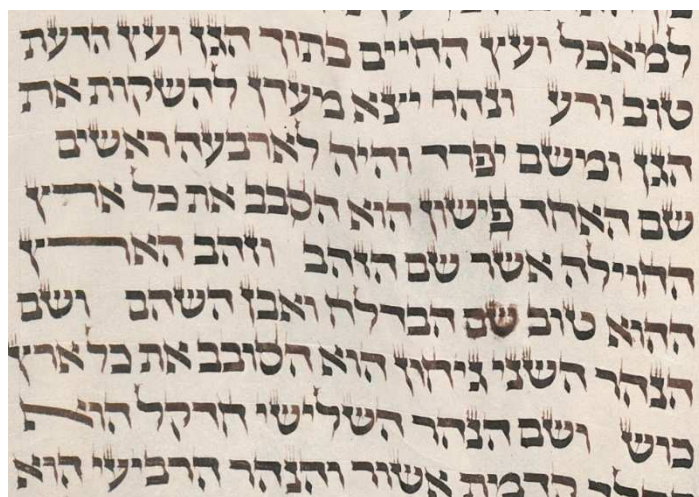 למאכל ועץ החיים בתוך הגן ועץ הדעת
טוב ורע ונהר יצא מעדן להשקות את
הגן ומשם יפרד והיה לארבעה ראשים
שם האחד פישון הוא הסבב את כל ארץ
החוילה אשר שם הזהב וזהב הארץ
ההוא טוב שם הבדלח ואבן השהם ושם
הנהר השני גיחון הוא הסובב את כל ארץ
כוש ושם הנהר השלישי חדקל הוא
קדמת אשור והנהר הרביעי הוא